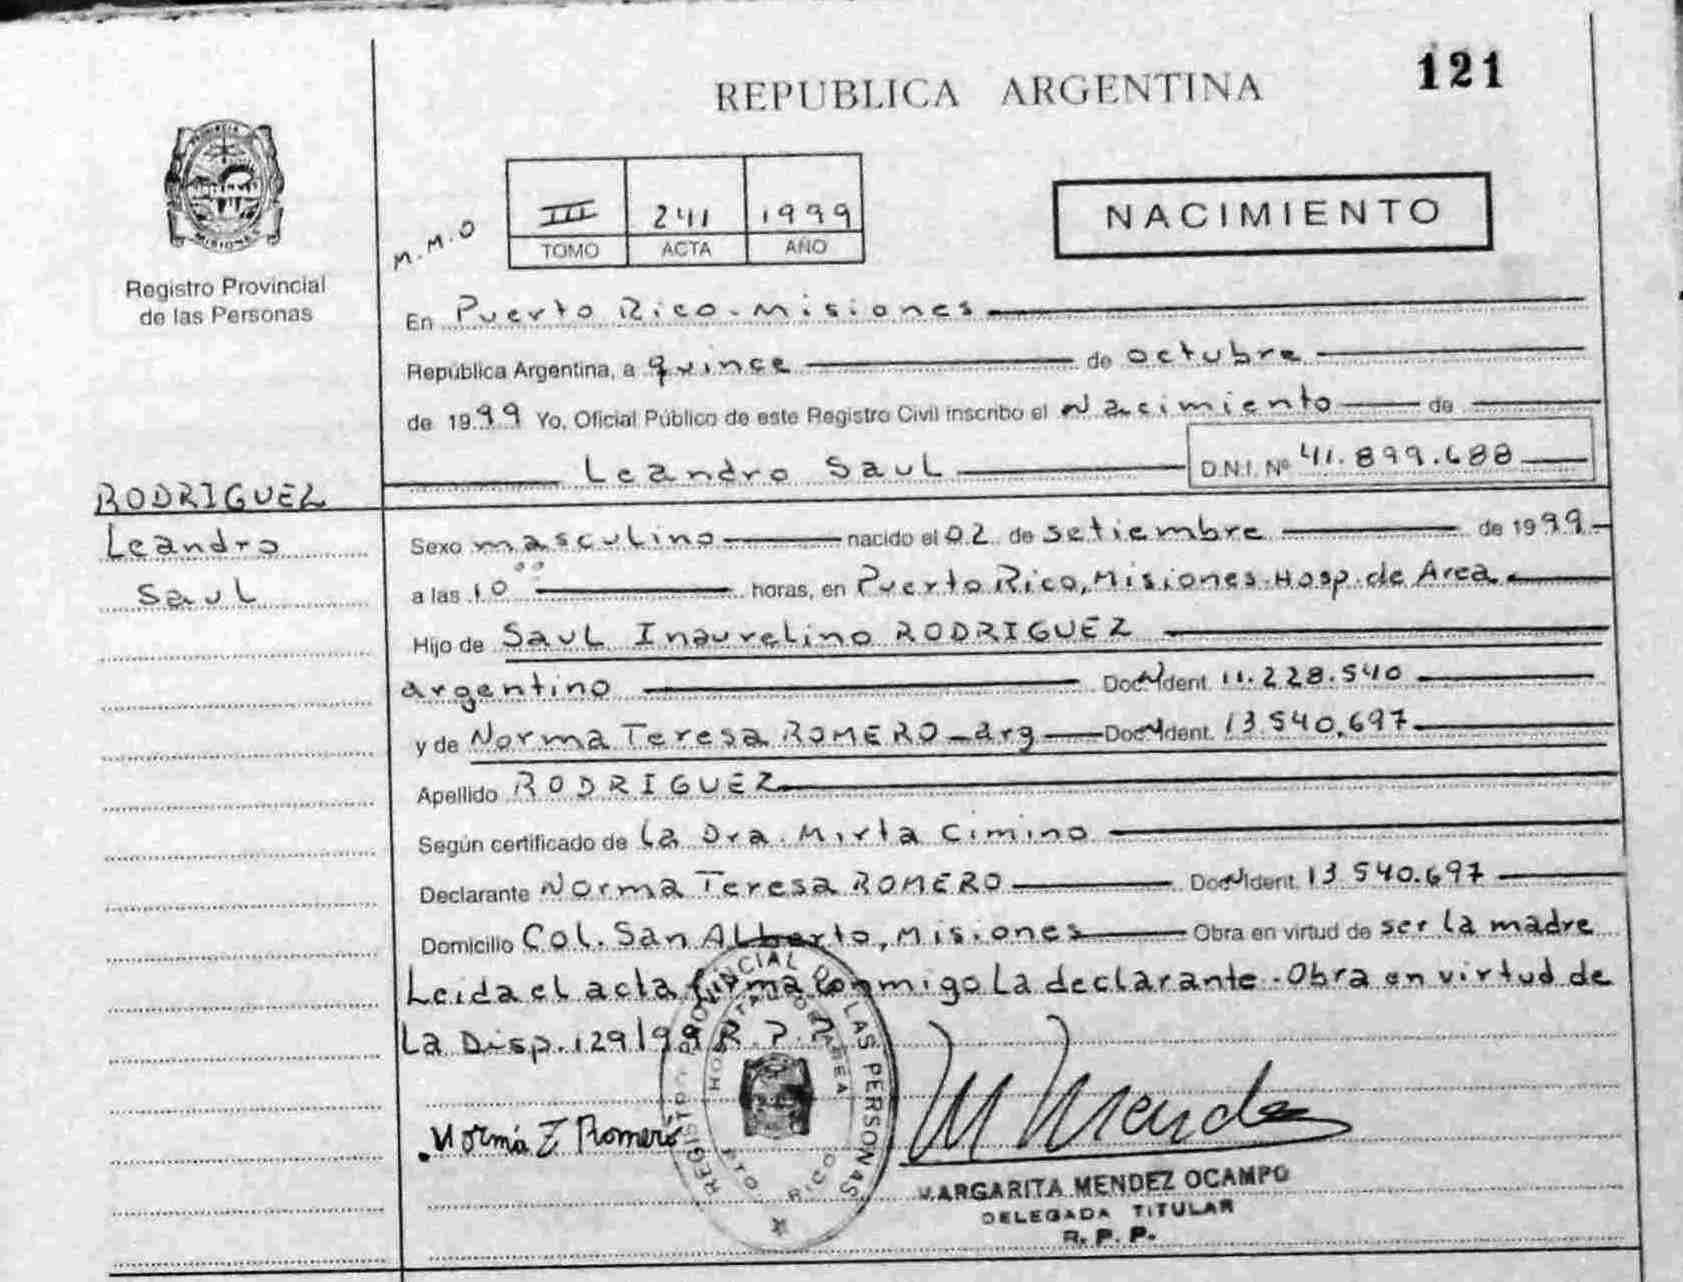 121
REPUBLICA ARGENTINA
PROVINCIA
MISIONES
Registro Provincial
de las Personas
M.M.O
III 241 1999
TOMO ACTA AÑO
NACIMIENTO
En Puerto Rico-Misiones
República Argentina, a quince de octubre
de 1999 Yo, Oficial Público de este Registro Civil inscribo el Nacimiento de
Leandro Saul D.N.I. Nº 41.899.688
RODRIGUEZ
Leandro
Saul
Sexo masculino nacido el 02 de setiembre de 1999
a las 10 00 horas, en Puerto Rico, Misiones-Hosp. de Area
Hijo de Saul Inaurelino RODRIGUEZ
argentino Doc. Ident. 11.228.540
y de Norma Teresa ROMERO - arg Doc. Ident. 13.540.697
Apellido RODRIGUEZ
Según certificado de la Dra. Mirta Cimino
Declarante Norma Teresa ROMERO Doc. Ident. 13.540.697
Domicilio Col. San Alberto, Misiones Obra en virtud de ser la madre
Leida el acta firma conmigo la declarante. Obra en virtud de
la Disp. 129/99 R.P.P.
REGISTRO PROVINCIAL DE LAS PERSONAS
HOSPITAL DE AREA
PTO RICO
Norma T Romero
M Mendez
MARGARITA MENDEZ OCAMPO
DELEGADA TITULAR
R. P. P.